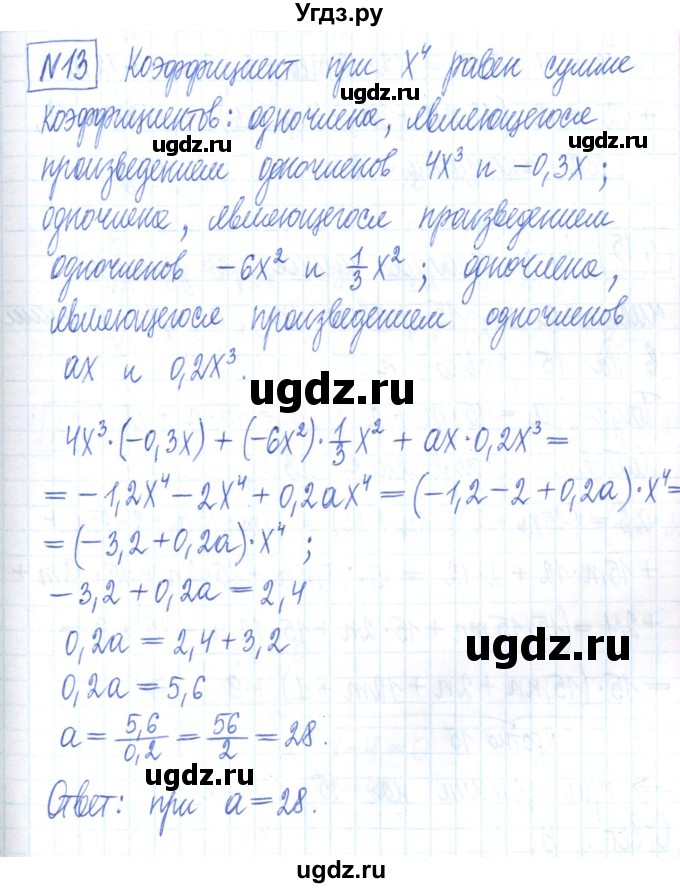 Угдз.ру
№13 Коэффициент при x⁴ равен сумме
ugdz.ru
коэффициентов: одночлена, являющегося
ugdz.ru ugdz.ru
произведением одночленов 4x³ и −0,3x;
одночлена, являющегося произведением
одночленов −6x² и 1/3 x²; одночлена,
являющегося произведением одночленов
ax и 0,2x³.
ugdz.ru
4x³·(−0,3x) + (−6x²)·1/3 x² + ax·0,2x³ =
= −1,2x⁴ − 2x⁴ + 0,2ax⁴ = (−1,2 − 2 + 0,2a)·x⁴ =
= (−3,2 + 0,2a)·x⁴ ;
ugdz.ru
−3,2 + 0,2a = 2,4
0,2a = 2,4 + 3,2
ugdz.ru
0,2a = 5,6
a = 5,6/0,2 = 56/2 = 28.
ugdz.ru
Ответ: при a = 28.
ugdz.ru
ugdz.ru